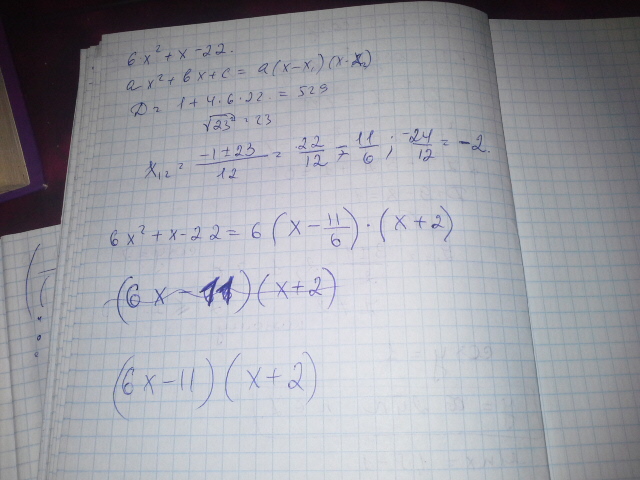 6x² + x - 22.
ax² + bx + c = a(x-x₁)(x-x₂)
D = 1 + 4·6·22 = 529
√23² = 23
x₁,₂ = (-1±23)/12 = 22/12 = 11/6 ; -24/12 = -2.
6x² + x - 22 = 6(x - 11/6)·(x+2)
(6x - 11)(x+2)
(6x-11)(x+2)